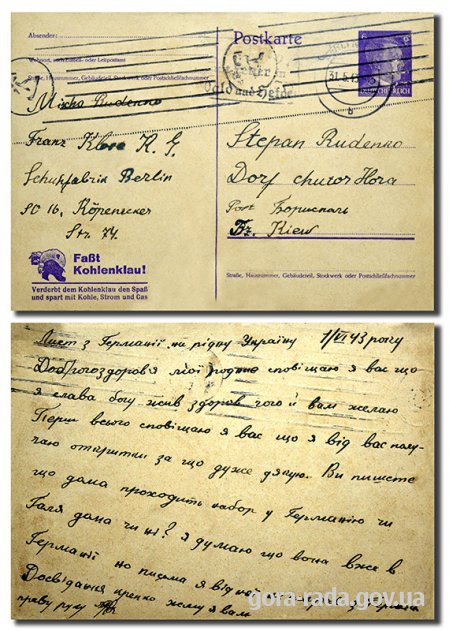 Absender:
Postkarte
Wohnort, auch Zustell- oder Leitpostamt
Straße, Hausnummer, Gebäudeteil, Stockwerk oder Postschließfachnummer
Wald und Heide
31.5.43
DEUTSCHES REICH
b
Micha Rudenko
Franz Klose K. G.
Schuhfabrik Berlin
SO 16, Köpeniker
Str. 74
Stepan Rudenko
Dorf chutor Hora
Post Бориспаль
Bz. Kiew
Faßt
Kohlenklau!
Verderbt dem Kohlenklau den Spaß
und spart mit Kohle, Strom und Gas
Straße, Hausnummer, Gebäudeteil, Stockwerk oder Postschließfachnummer
Лист з Германії на рідну Україну 1/VI 43 року
Доброгоздоровя мої родные сповіщаю я вас що
я слава богу жив здоров чого й вам желаю
Перш всього сповіщаю я вас що я від вас полу-
чаю открытки за що дуже дякую. Ви пишете
що дома проходить набор у Германію чи
Галя дома чи ні? Я думаю що вона вже в
Германії но письма я від неї не
Досвідання крепко жму я вам
праву руку
gora-rada.gov.ua